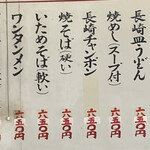 長崎皿うどん 六五〇円
焼めし(スープ付) 六五〇円
長崎チャンポン 六五〇円
焼そば(硬い) 六五〇円
いためそば(軟い) 六五〇円
ワンタンメン 六五〇円